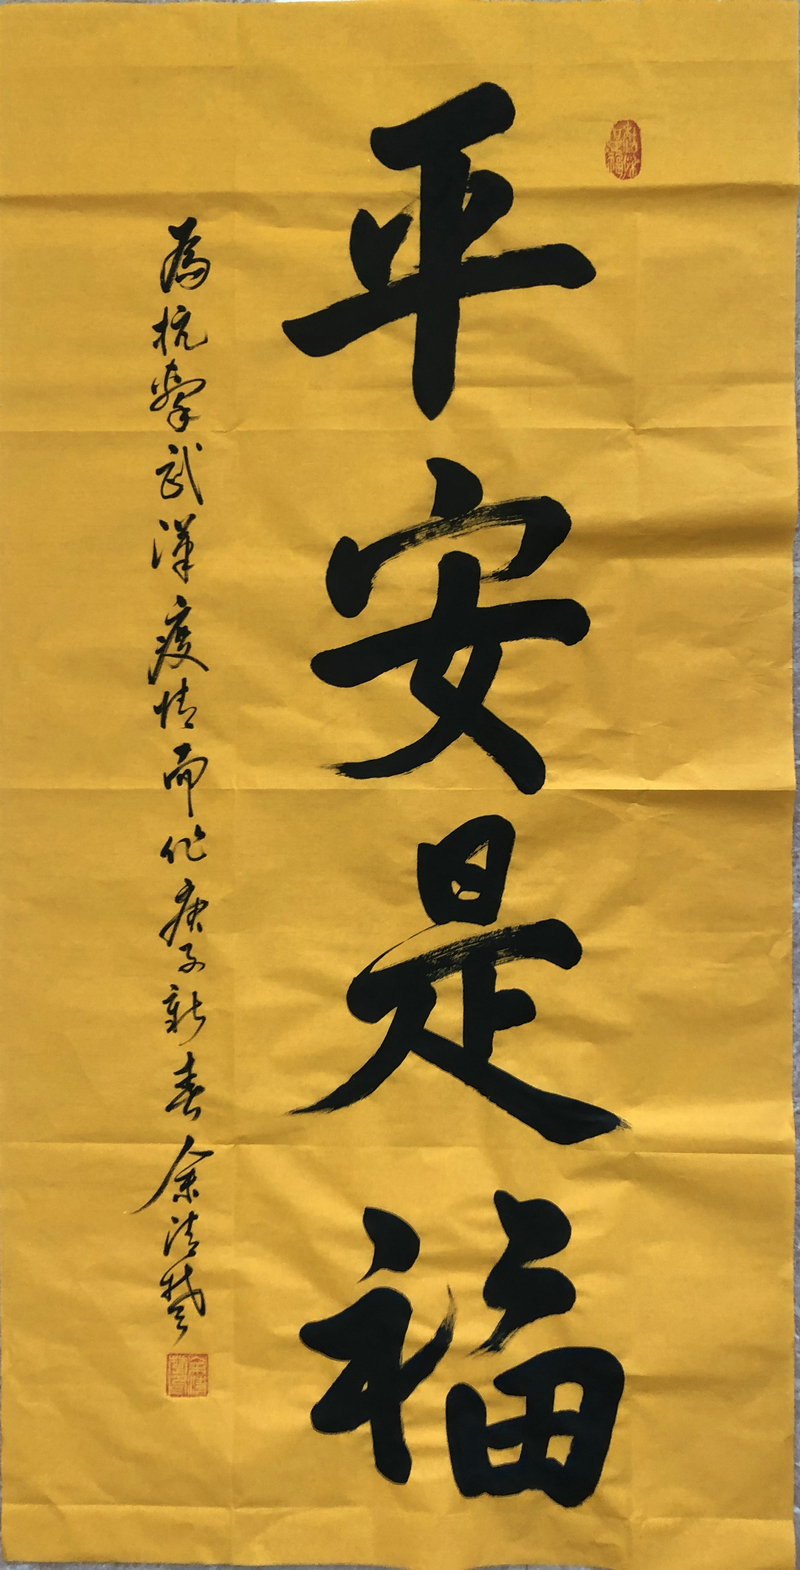 平安是福
為抗擊武漢疫情而作庚子新春余清楚